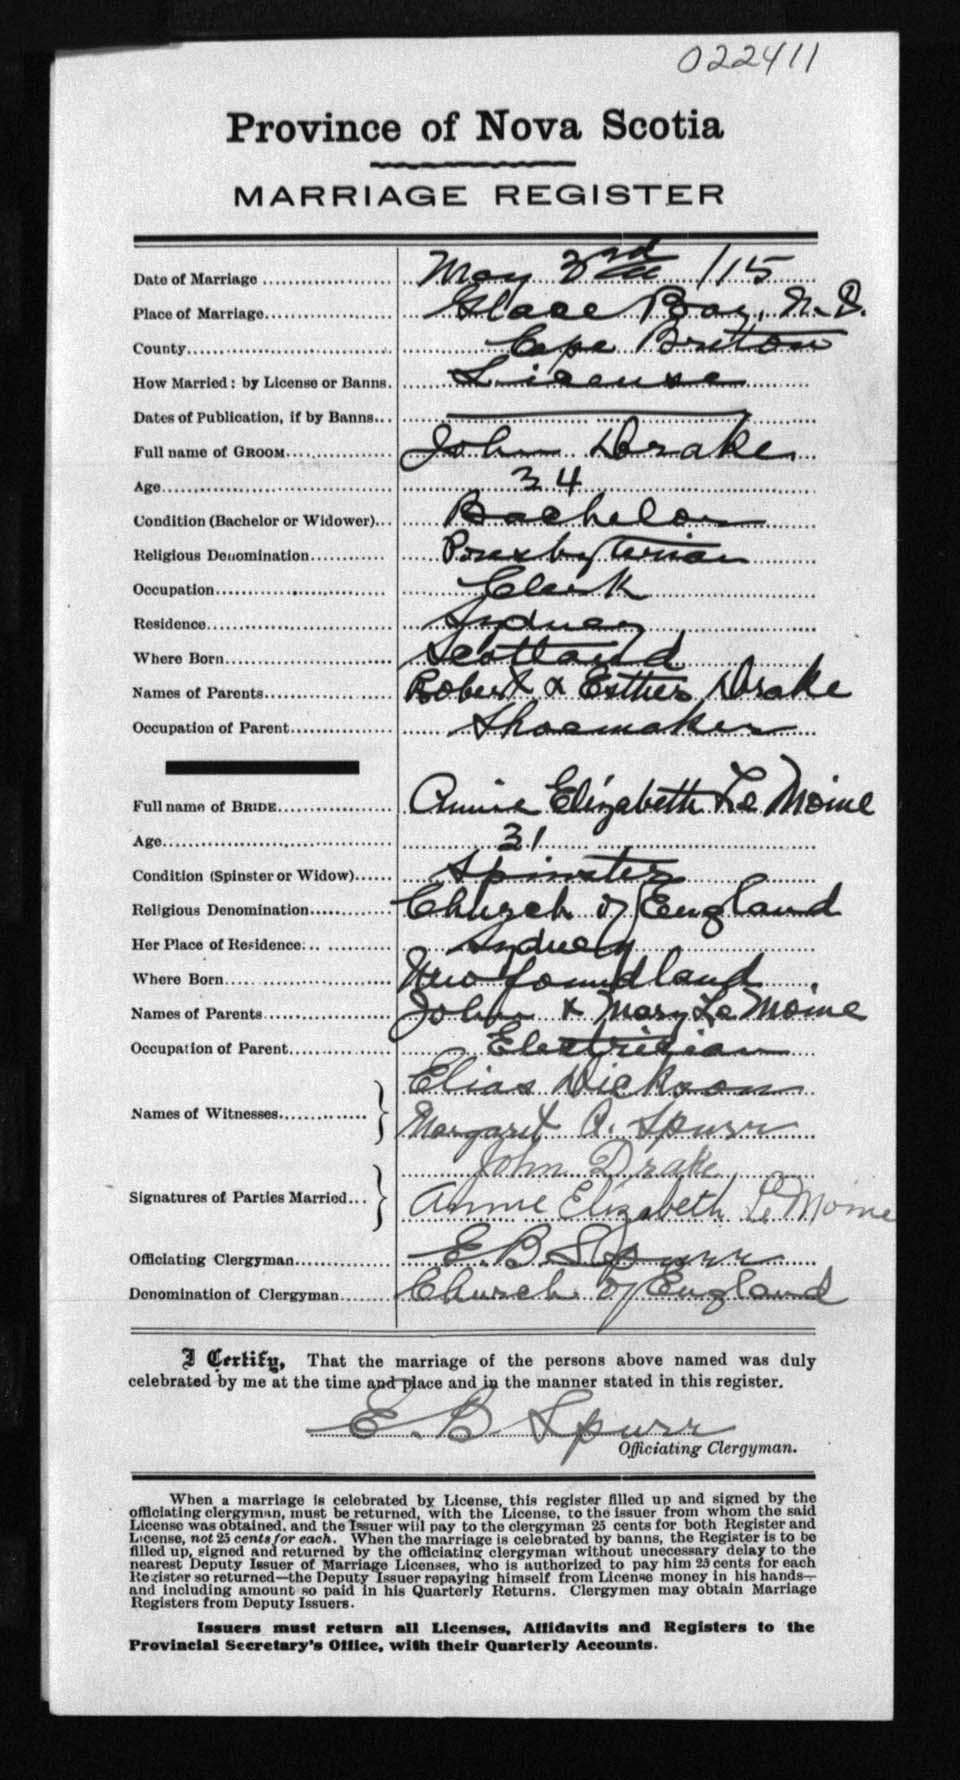 022411
Province of Nova Scotia
MARRIAGE REGISTER
Date of Marriage May 3rd /15
Place of Marriage Glace Bay, N.S.
County Cape Breton
How Married: by License or Banns. License
Dates of Publication, if by Banns
Full name of GROOM John Drake
Age 34
Condition (Bachelor or Widower) Bachelor
Religious Denomination Presbyterian
Occupation Clerk
Residence Sydney
Where Born Scotland
Names of Parents Robert & Esther Drake
Occupation of Parent Shoemaker
Full name of BRIDE Annie Elizabeth Le Moine
Age 31
Condition (Spinster or Widow) Spinster
Religious Denomination Church of England
Her Place of Residence Sydney
Where Born Newfoundland
Names of Parents John & Mary Le Moine
Occupation of Parent Electrician
Elias Dickson
Names of Witnesses
Margaret A. Spurr
John Drake
Signatures of Parties Married
Annie Elizabeth Le Moine
Officiating Clergyman E. B. Spurr
Denomination of Clergyman Church of England
I Certify, That the marriage of the persons above named was duly
celebrated by me at the time and place and in the manner stated in this register.
E. B. Spurr
Officiating Clergyman.
When a marriage is celebrated by License, this register filled up and signed by the
officiating clergyman, must be returned, with the License, to the issuer from whom the said
License was obtained, and the Issuer will pay to the clergyman 25 cents for both Register and
License, not 25 cents for each. When the marriage is celebrated by banns, the Register is to be
filled up, signed and returned by the officiating clergyman without unnecessary delay to the
nearest Deputy Issuer of Marriage Licenses, who is authorized to pay him 25 cents for each
Register so returned—the Deputy Issuer repaying himself from License money in his hands—
and including amount so paid in his Quarterly Returns. Clergymen may obtain Marriage
Registers from Deputy Issuers.
Issuers must return all Licenses, Affidavits and Registers to the
Provincial Secretary's Office, with their Quarterly Accounts.